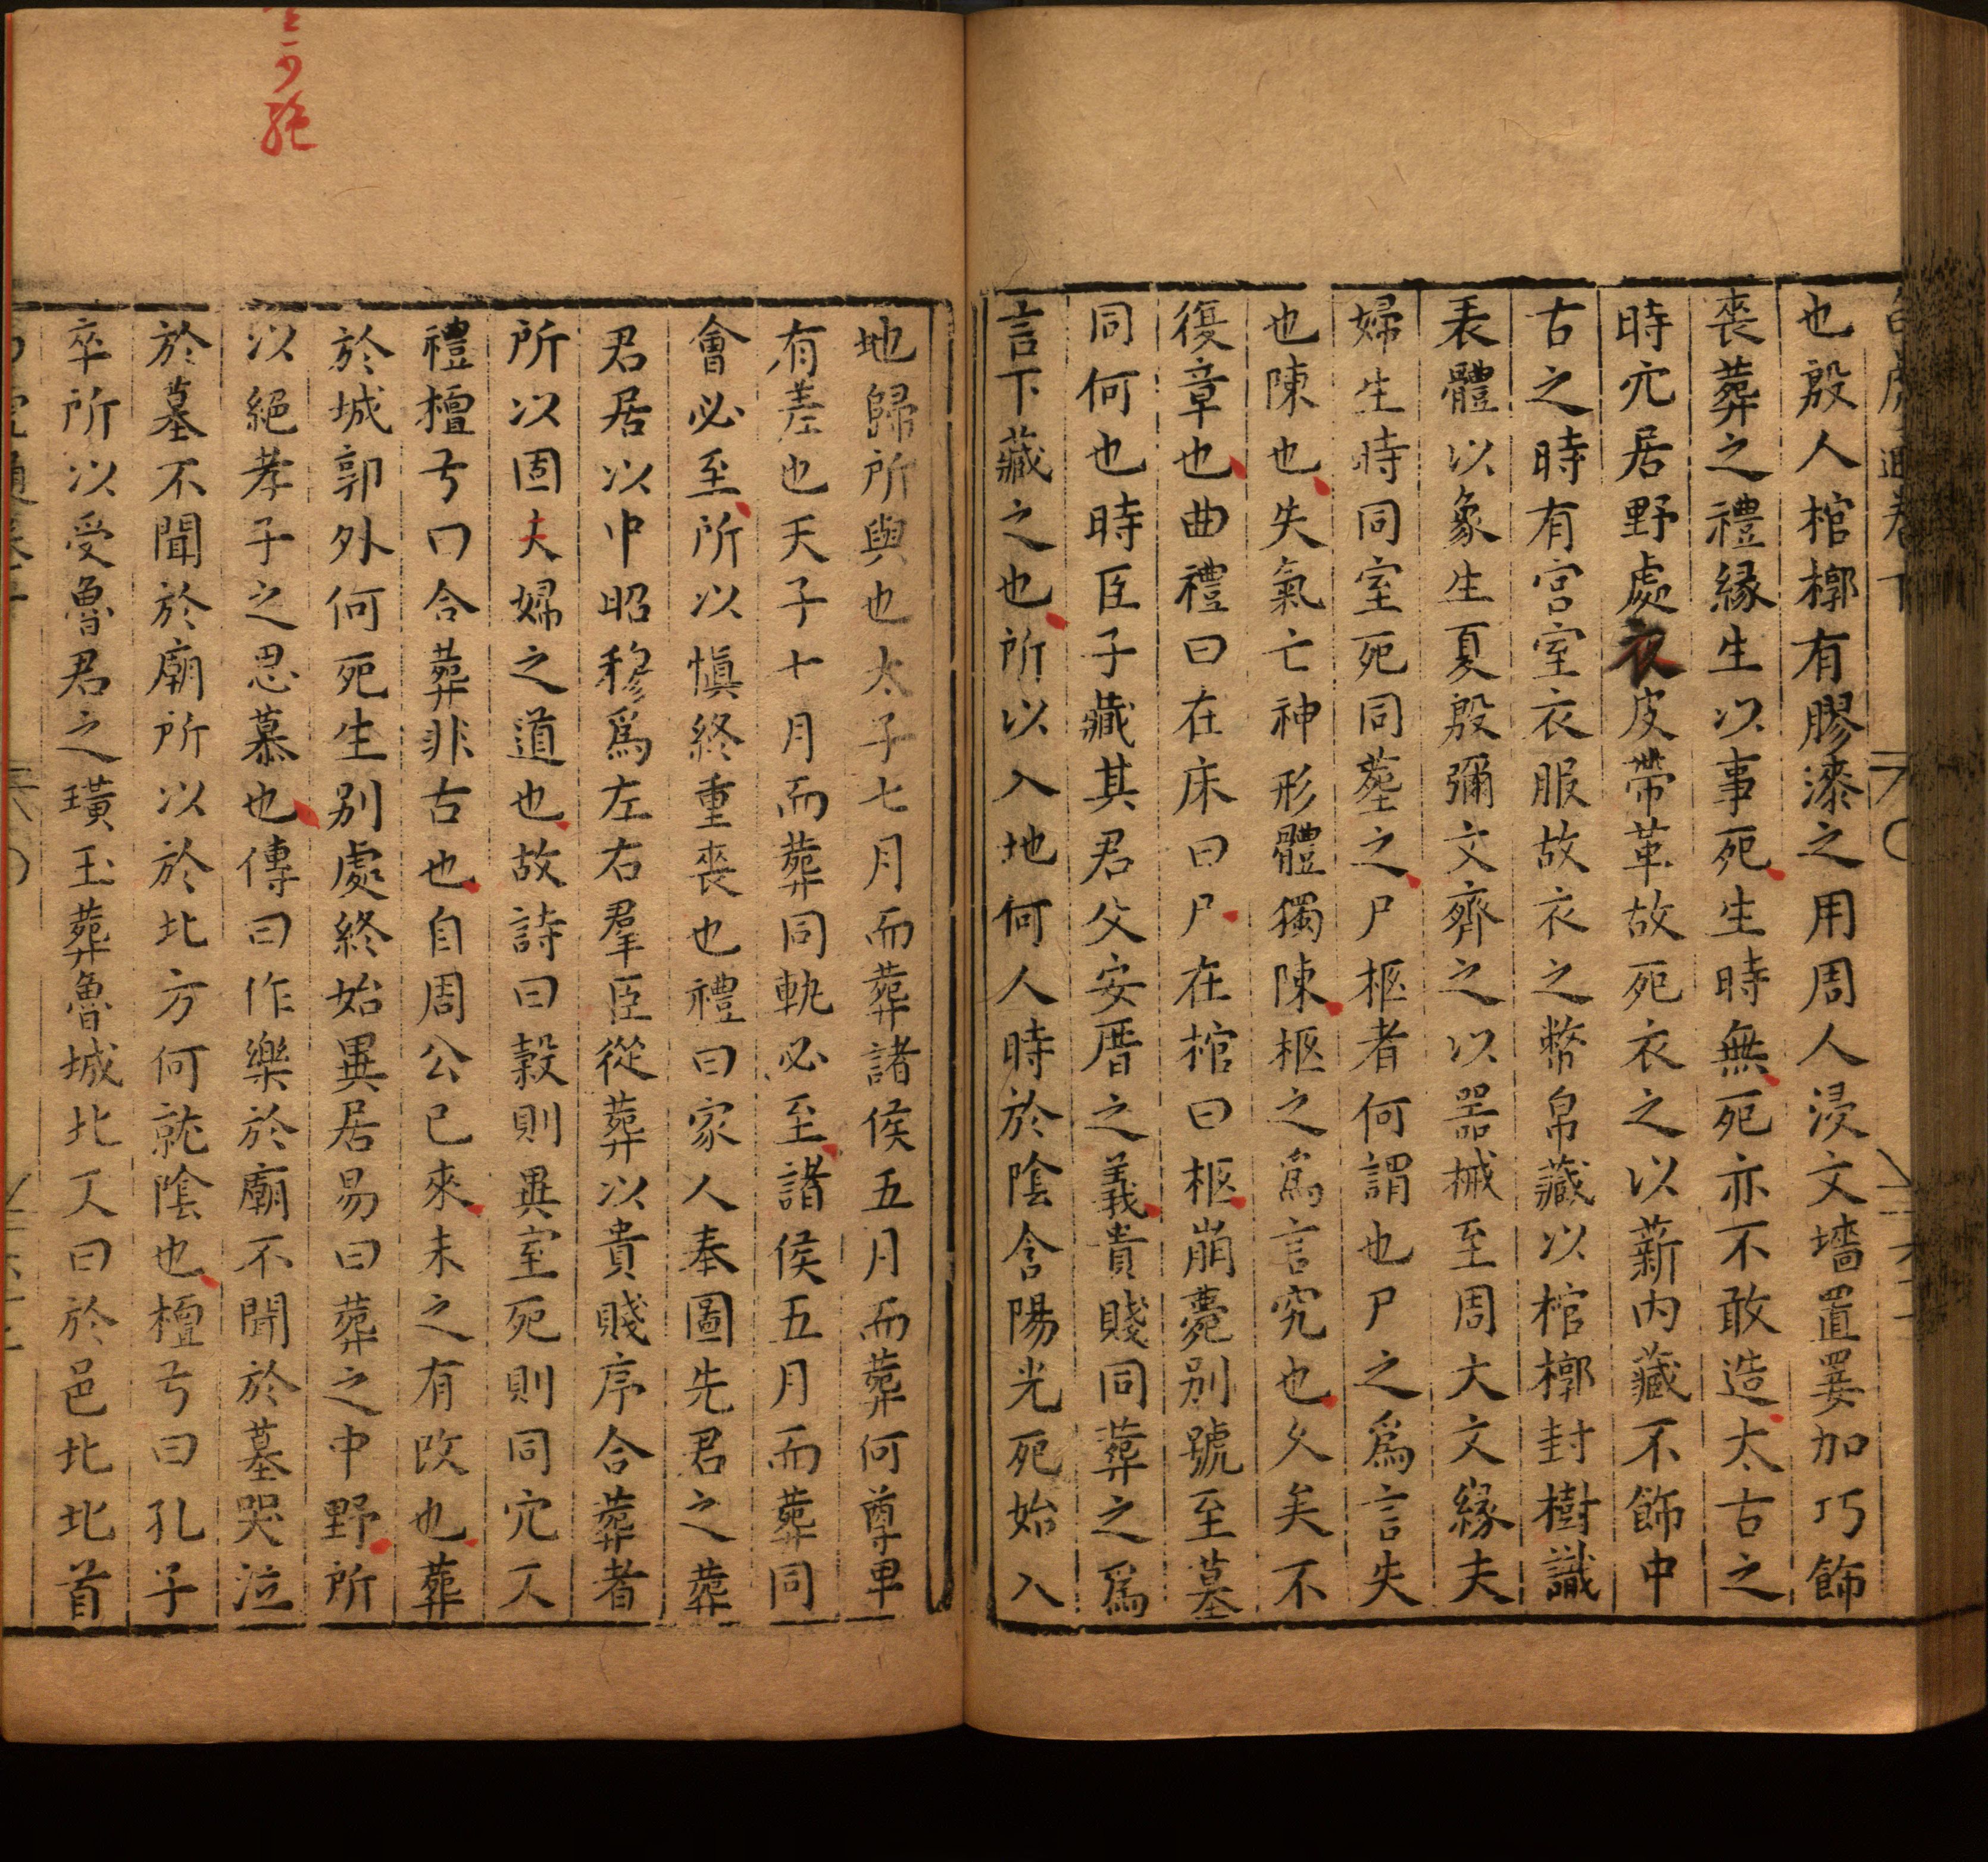 也殷人棺槨有膠漆之用周人浸文墻置翣加巧飾
喪葬之禮緣生以事死生時無死亦不敢造太古之
時穴居野處衣皮帶革故死衣之以薪內藏不飾中
古之時有宮室衣服故衣之幣帛藏以棺槨封樹識
表體以象生夏殷彌文齊之以器械至周大文緣夫
婦生時同室死同葬之尸柩者何謂也尸之爲言失
也陳也失氣亡神形體獨陳柩之爲言究也久矣不
復章也曲禮曰在床曰尸在棺曰柩崩薨別號至墓
同何也時臣子藏其君父安厝之義貴賤同葬之爲
言下藏之也所以入地何人時於陰含陽光死始入
地歸所與也太子七月而葬諸侯五月而葬何尊卑
有差也天子十月而葬同軌必至諸侯五月而葬同
會必至所以愼終重喪也禮曰家人奉圖先君之葬
君居以中昭穆爲左右羣臣從葬以貴賤序合葬者
所以固夫婦之道也故詩曰穀則異室死則同穴又
禮檀弓曰合葬非古也自周公已來未之有改也葬
於城郭外何死生別處終始異居易曰葬之中野所
以絕孝子之思慕也傳曰作樂於廟不聞於墓哭泣
於墓不聞於廟所以於北方何就陰也檀弓曰孔子
卒所以受魯君之璜玉葬魯城北又曰於邑北北首